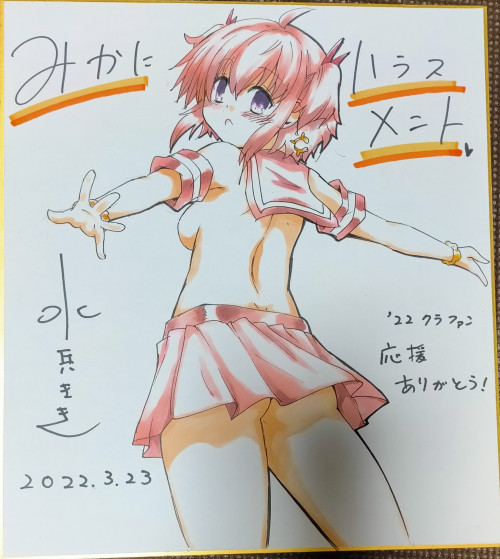 みかに
ハラス
メント
水
兵きき
'22 クラファン
応援
ありがとう!
2022.3.23